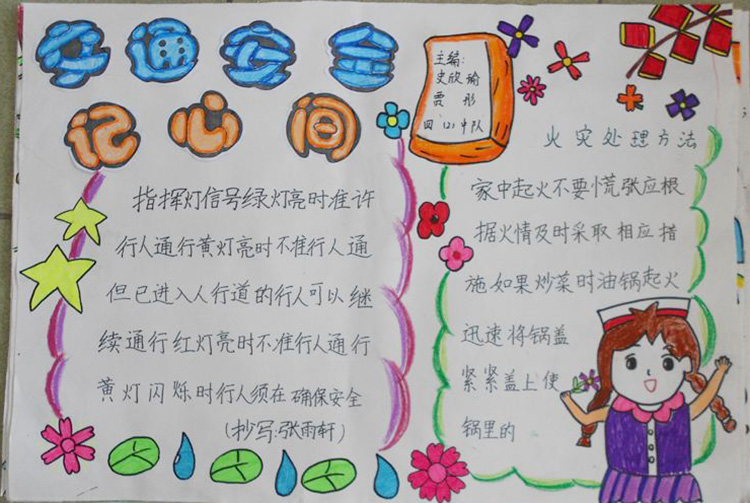 交通安全
记心间
主编:
史欣瑜
贾彤
四(2)中队
指挥灯信号绿灯亮时准许
行人通行黄灯亮时不准行人通
但已进入人行道的行人可以继
续通行红灯亮时不准行人通行
黄灯闪烁时行人须在确保安全
(抄写:张雨轩)
火灾处理方法
家中起火不要慌张应根
据火情及时采取相应措
施如果炒菜时油锅起火
迅速将锅盖
紧紧盖上使
锅里的